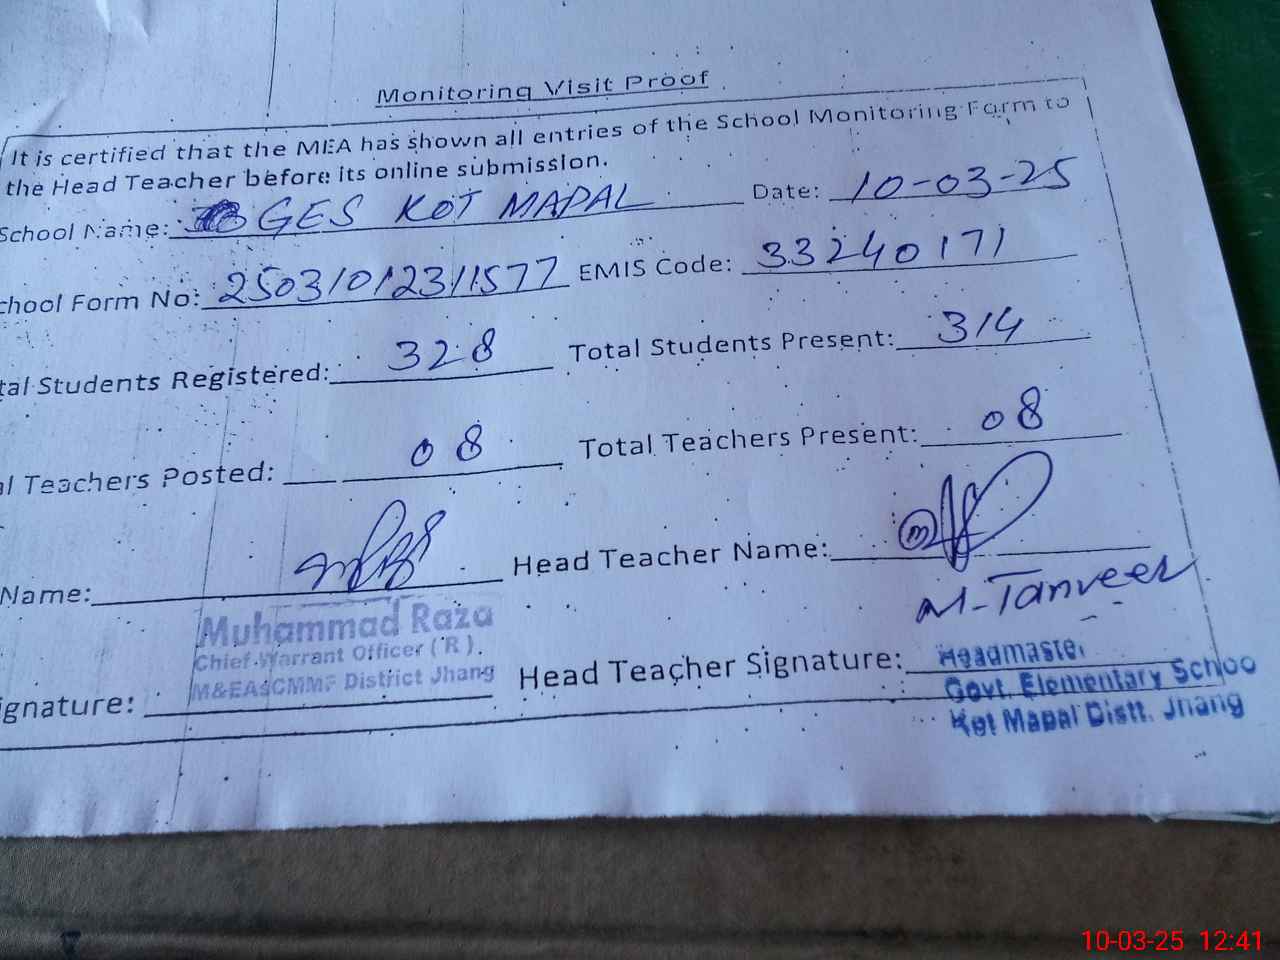 Monitoring Visit Proof
It is certified that the MEA has shown all entries of the School Monitoring Form to
the Head Teacher before its online submission.
School Name: GES KOT MAPAL Date: 10-03-25
chool Form No: 25031012311577 EMIS Code: 33240171
tal Students Registered: 328 Total Students Present: 314
al Teachers Posted: 08 Total Teachers Present: 08
Name: Head Teacher Name:
M-Tanveer
Muhammad Raza
Chief Warrant Officer (R).
M&EAsCMMF District Jhang
ignature: Head Teacher Signature:
Headmaster
Govt. Elementary Schoo
Kot Mapal Distt. Jhang
10-03-25 12:41